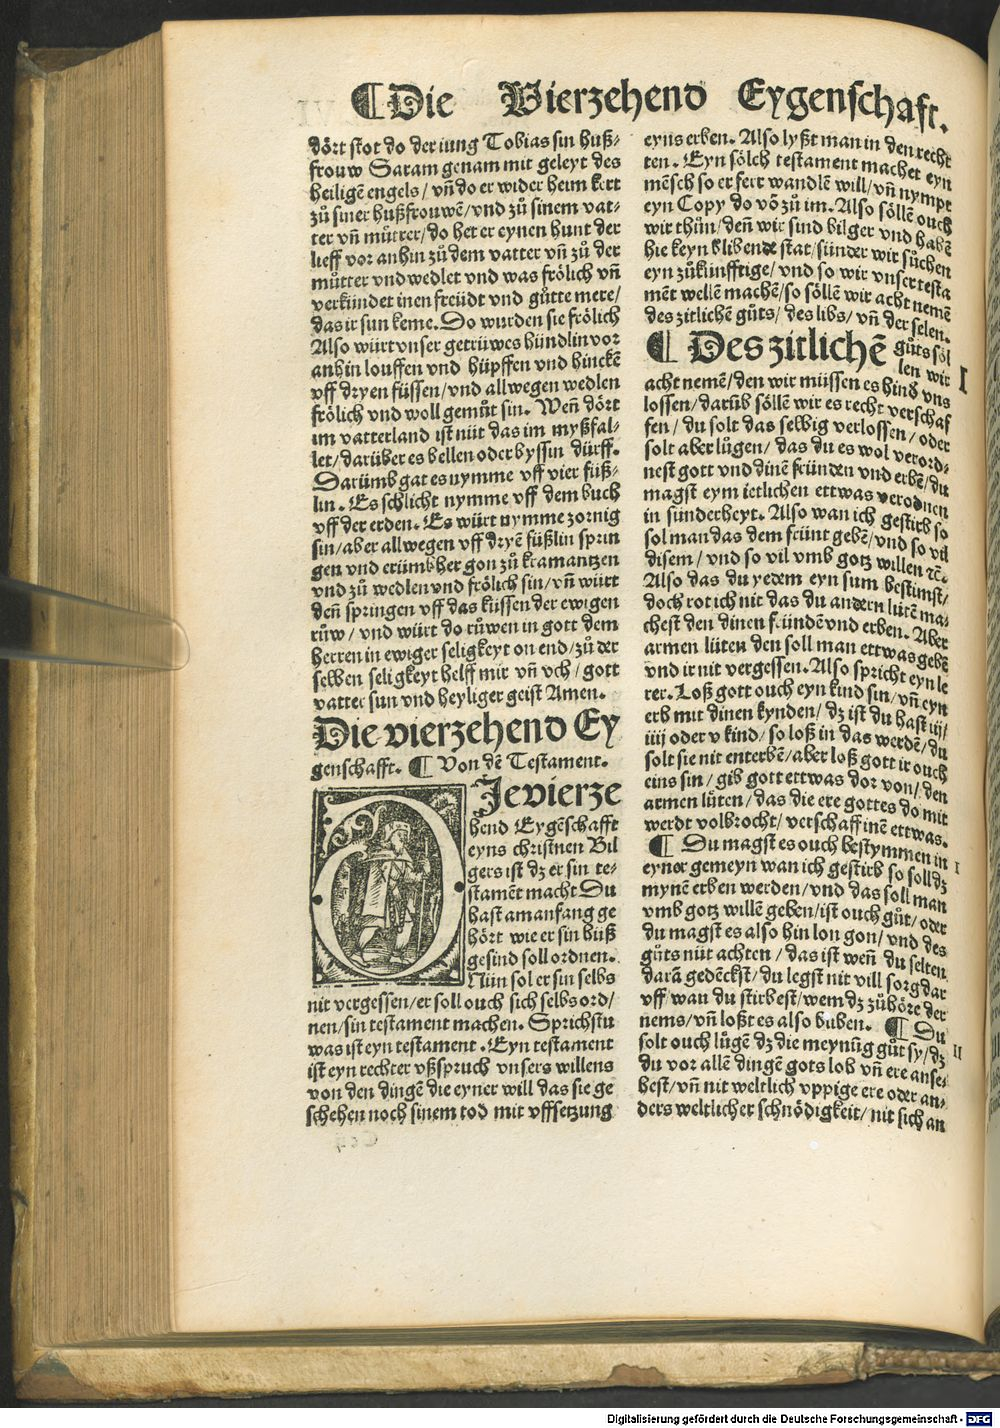 ¶Die Vierzehend Eygenschaft.
dört stot do der iung Tobias sin huß⸗
frouw Saram genam mit geleyt des
heiligē engels/ vñ do er wider heim kert
zů siner hußfrouwē/vnd zů sinem vat⸗
ter vñ můtter/do het er eynen hunt der
lieff vor anhin zů dem vatter vñ zů der
můtter vnd wedlet vnd was frölich vñ
verkündet inen freüdt vnd gůtte mere/
das ir sun keme. Do wurden sie frölich
Also würt vnser getrüwes hündlin vor
anhin louffen vnd hüpffen vnd hinckē
vff dryen füssen/vnd allwegen wedlen
frölich vnd woll gemůt sin. Weñ dört
im vatterland ist nüt das im myßfal⸗
let/darüber es bellen oder byssin dürff.
Darümb gat es nymme vff vier füß⸗
lin. Es schlicht nymme vff dem buch
vff der erden. Es würt nymme zornig
sin/aber allwegen vff dryē füßlin sprin
gen vnd erümbher gon zů kramantzen
vnd zů wedlen vnd frölich sin/vñ würt
deñ springen vff das küssen der ewigen
růw/ vnd würt do růwen in gott dem
herren in ewiger seligkeyt on end/zů der
selben seligkeyt helff mir vñ vch/ gott
vatter sun vnd heyliger geist Amen.
Die vierzehend Ey
genschafft. ¶ Von dē Testament.
DJe vierze
hend Eygēschafft
eyns christnen Bil
gers ist dz er sin te⸗
stamēt macht Du
hast am anfang ge
hört wie er sin huß
gesind soll ordnen.
Nün sol er sin selbs
nit vergessen/er soll ouch sich selbs ord/
nen/sin testament machen. Sprichstu
was ist eyn testament. Eyn testament
ist eyn rechter vßspruch vnsers willens
von den dingē die eyner will das sie ge
schehen noch sinem tod mit vffsetzung
eyns erben. Also lyßt man in den recht
ten. Eyn sölch testament machet eyn
mēsch so er ferr wandlē will/vñ nympt
eyn Copy do vō zů im. Also söllē ouch
wir thůn/deñ wir sind bilger vnd habē
hie keyn blibende stat/sünder wir sůchen
eyn zůkünfftige/vnd so wir vnser testa
mēt wellē machē/so söllē wir acht nemē
des zitlichē gůts/ des libs/ vñ der selen.
¶ Des zitlichē gůts söl
len wir
I
acht nemē/den wir müssen es hind vns
lossen/darüb söllē wir es recht verschaf
fen/ du solt das selbig verlossen/ oder
solt aber lůgen/ das du es wol verord⸗
nest gott vnd dinē fründen vnd erbē/du
magst eym ietlichen ettwas verodnen
in sünderheyt. Also wan ich gestirb so
sol man das dem frünt gebē/vnd so vil
disem/ vnd so vil vmb gotz willen ꝛc.
Also das du yedem eyn sum bestimst/
doch rot ich nit das du andern lütē ma⸗
chest den dinen fründē vnd erben. Aber
armen lüten den soll man ettwas gebē
vnd ir nit vergessen. Also spricht eyn le
rer. Loß gott ouch eyn kind sin/ vñ eyn
erb mit dinen kynden/ dz ist du hast iij/
iiij oder v kind/ so loß in das werdē/du
solt sie nit enterbē/aber loß gott ir ouch
eins sin/ gib gott ettwas dor von/ den
armen lüten/das die ere gottes do mit
werdt volbrocht/ verschaff inē ettwas.
¶ Du magst es ouch bestymmen in
I
eyner gemeyn wan ich gestirb so soll dz
mynē erben werden/vnd das soll man
vmb gotz willē geben/ist ouch gůt/ oder
du magst es also hin lon gon/ vnd des
gůts nüt achten/ das ist weñ du selten
darā gedēckst/du legst nit vill sorg dar
vff/wan du stirbest/wem dz zůhöre der
nems/vñ loßt es also buben. ¶ Du
solt ouch lůgē dz die meynūg gůt sy/dz
II
du vor allē dingē gots lob vñ ere anse⸗
hest/vñ nit weltlich vppige ere oder an⸗
ders weltlicher schnödigkeit/ nit sich an
Digitalisierung gefördert durch die Deutsche Forschungsgemeinschaft - DFG